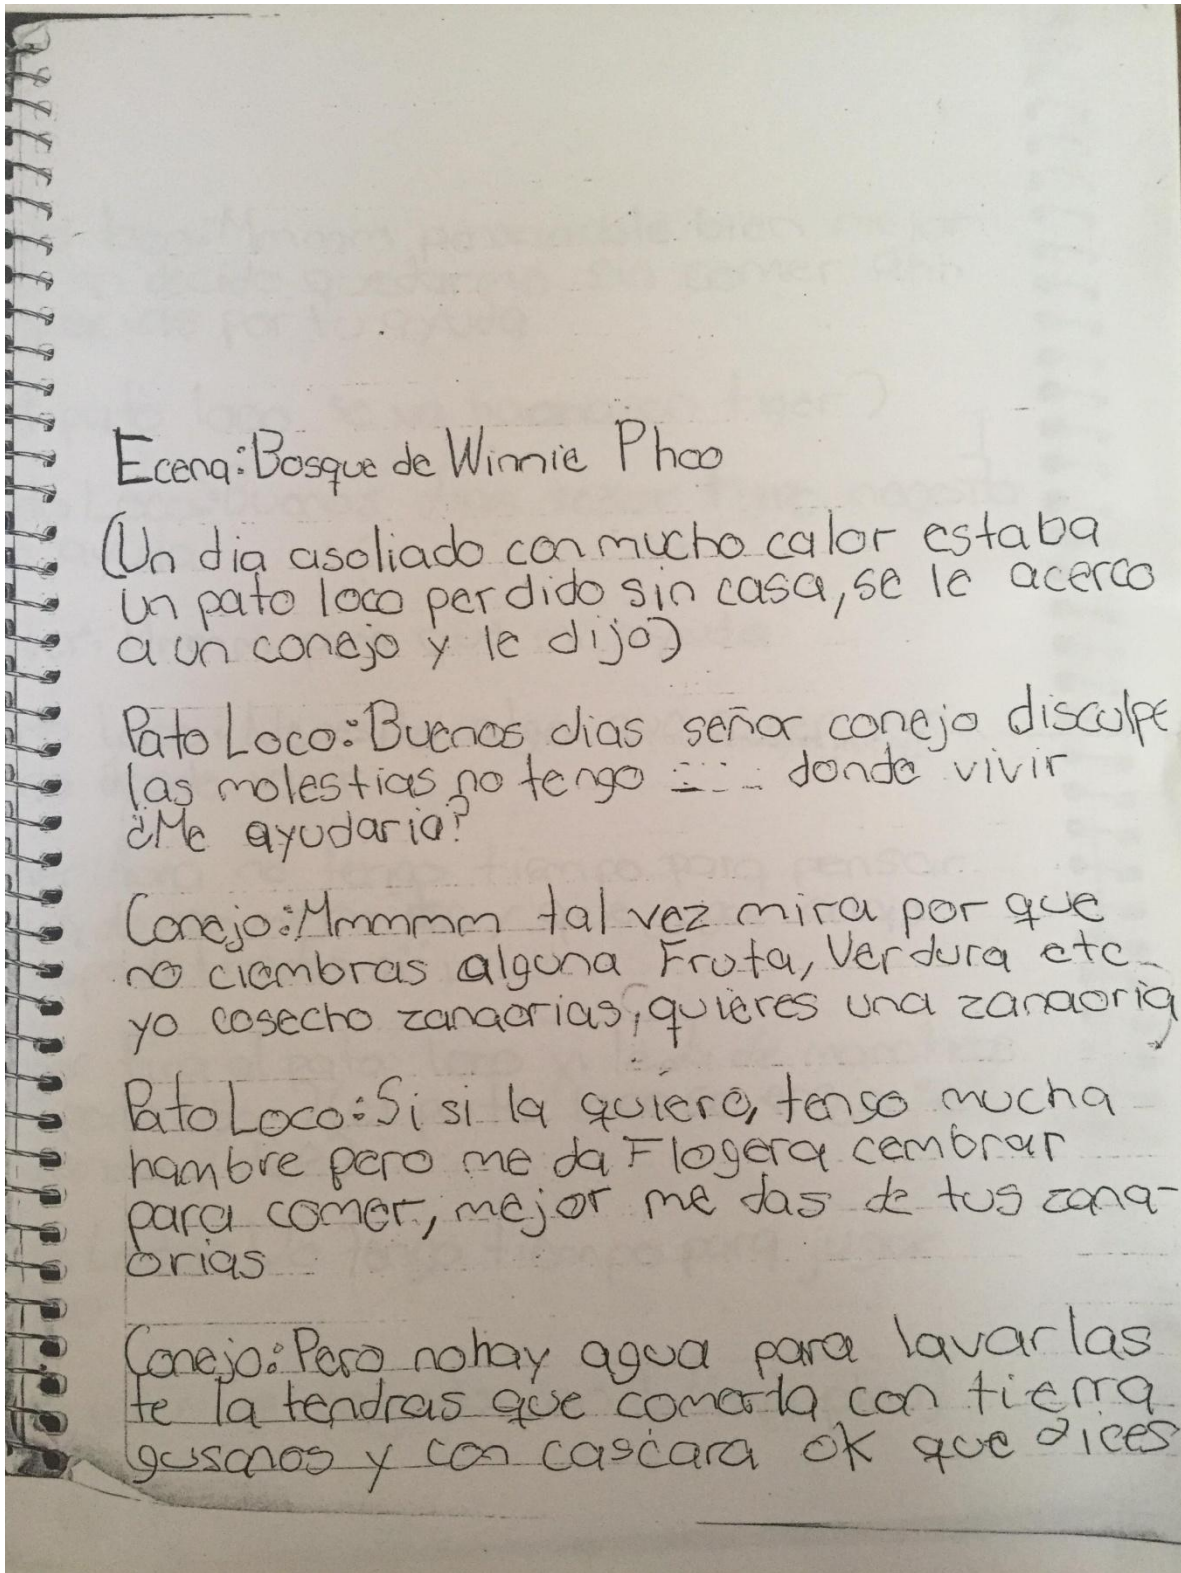 Ecena: Bosque de Winnie Phoo
(Un dia asoliado con mucho calor estaba
un pato loco perdido sin casa, se le acerco
a un conejo y le dijo)
Pato Loco: Buenos dias señor conejo disculpe
las molestias no tengo donde vivir
¿Me ayudaria?
Conejo: Mmmmm tal vez mira por que
no ciembras alguna Fruta, Verdura etc.
yo cosecho zanaorias, quieres una zanaoria
Pato Loco: Si si la quiero, tengo mucha
hambre pero me da Flogera cembrar
para comer, mejor me das de tus zana-
orias
Conejo: Pero nohay agua para lavarlas
te la tendras que comerla con tierra
gusanos y con cascara ok que dices